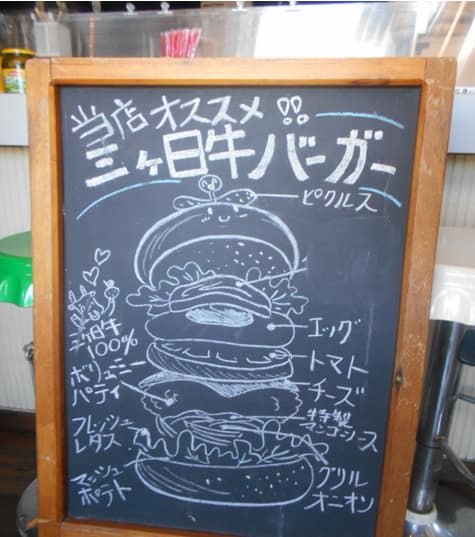 当店オススメ!!
三ヶ日牛バーガー
ピクルス
エッグ
三ヶ日牛
100%
ボリューミー
パティ
トマト
チーズ
特製
マンゴーソース
フレッシュ
レタス
マッシュ
ポテト
グリル
オニオン